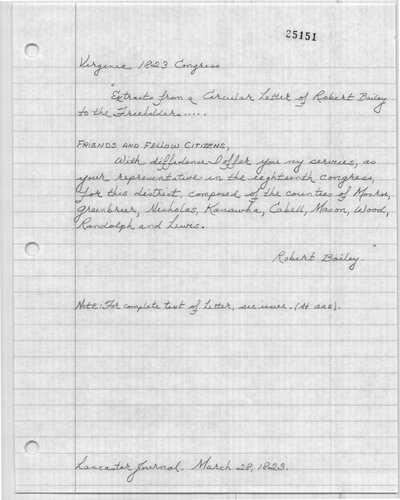 25151
Virginia 1823 Congress
"Extracts from a Circular Letter of Robert Bailey
to the Freeholders.....
FRIENDS AND FELLOW CITIZENS,
With diffidence I offer you my services, as
your representative in the eighteenth congress,
for this district, composed of the counties of Monroe,
Greenbrier, Nicholas, Kanawha, Cabell, Mason, Wood,
Randolph and Lewis.
Robert Bailey.
NOTE: For complete text of Letter, see issue. (At aas).
Lancaster Journal. March 28, 1823.